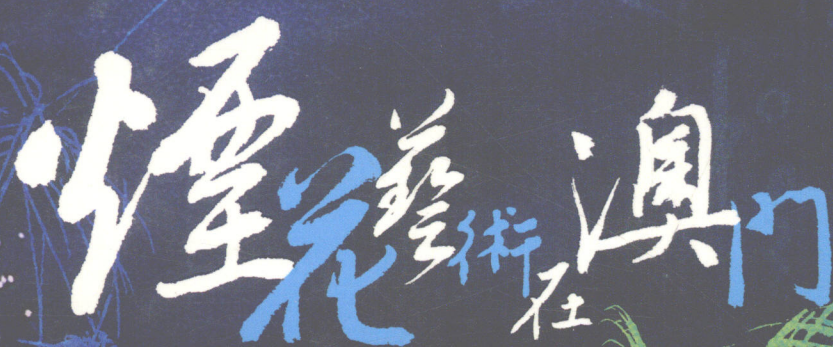 煙花藝術在澳門